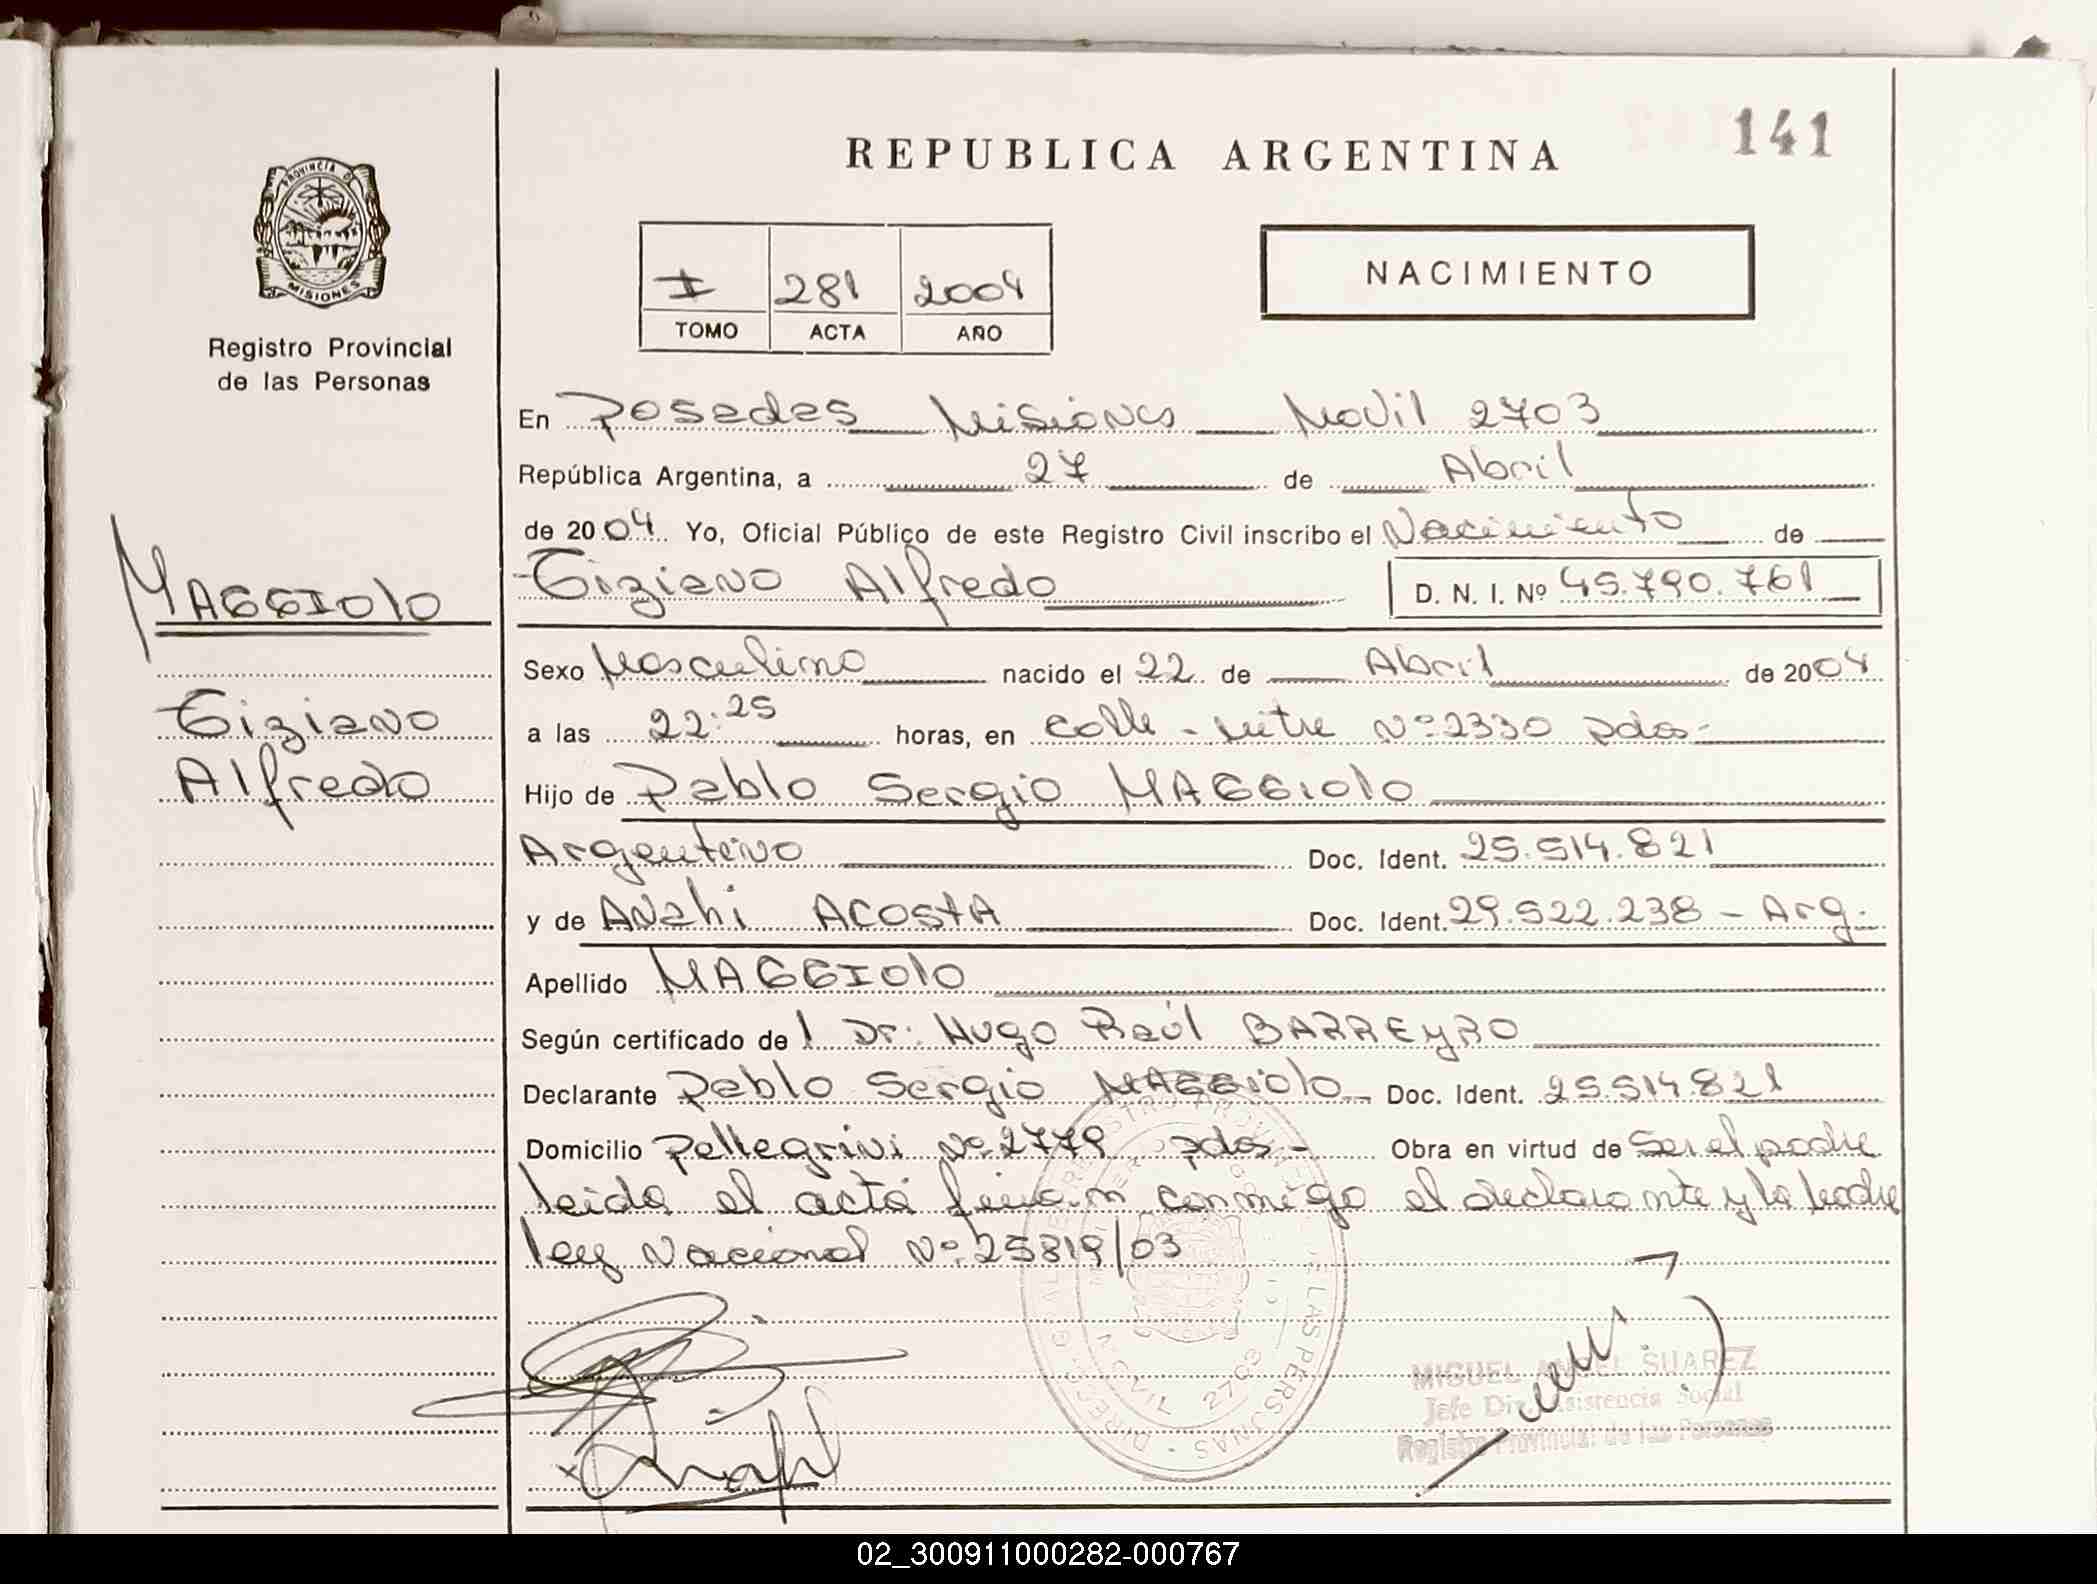 141
REPUBLICA ARGENTINA
PROVINCIA D
MISIONES
Registro Provincial
de las Personas
I 281 2004
TOMO ACTA AÑO
NACIMIENTO
En Posadas Misiones Movil 2703
República Argentina, a 27 de Abril
de 2004 Yo, Oficial Público de este Registro Civil inscribo el Nacimiento de
MAGGIOLO
Tiziano Alfredo D. N. I. Nº 45.790.761
Sexo Masculino nacido el 22 de Abril de 2004
Tiziano
a las 22:25 horas, en Calle - Mitre Nº 2330 pdas-
Alfredo
Hijo de Pablo Sergio MAGGIOLO
Argentino Doc. Ident. 25.514.821
y de Anahi ACOSTA Doc. Ident. 29.522.238 - Arg.
Apellido MAGGIOLO
Según certificado del Dr: Hugo Raúl BARREYRO
Declarante Pablo Sergio MAGGIOLO Doc. Ident. 25.514.821
Domicilio Pellegrini Nº 2779 pdas- Obra en virtud de Ser el padre
leida el acta firman conmigo el declarante y la Madre
ley Nacional Nº 25819/03
MIGUEL ANGEL SUAREZ
Jefe Div. Asistencia Social
Registro Provincial de las Personas
02_300911000282-000767